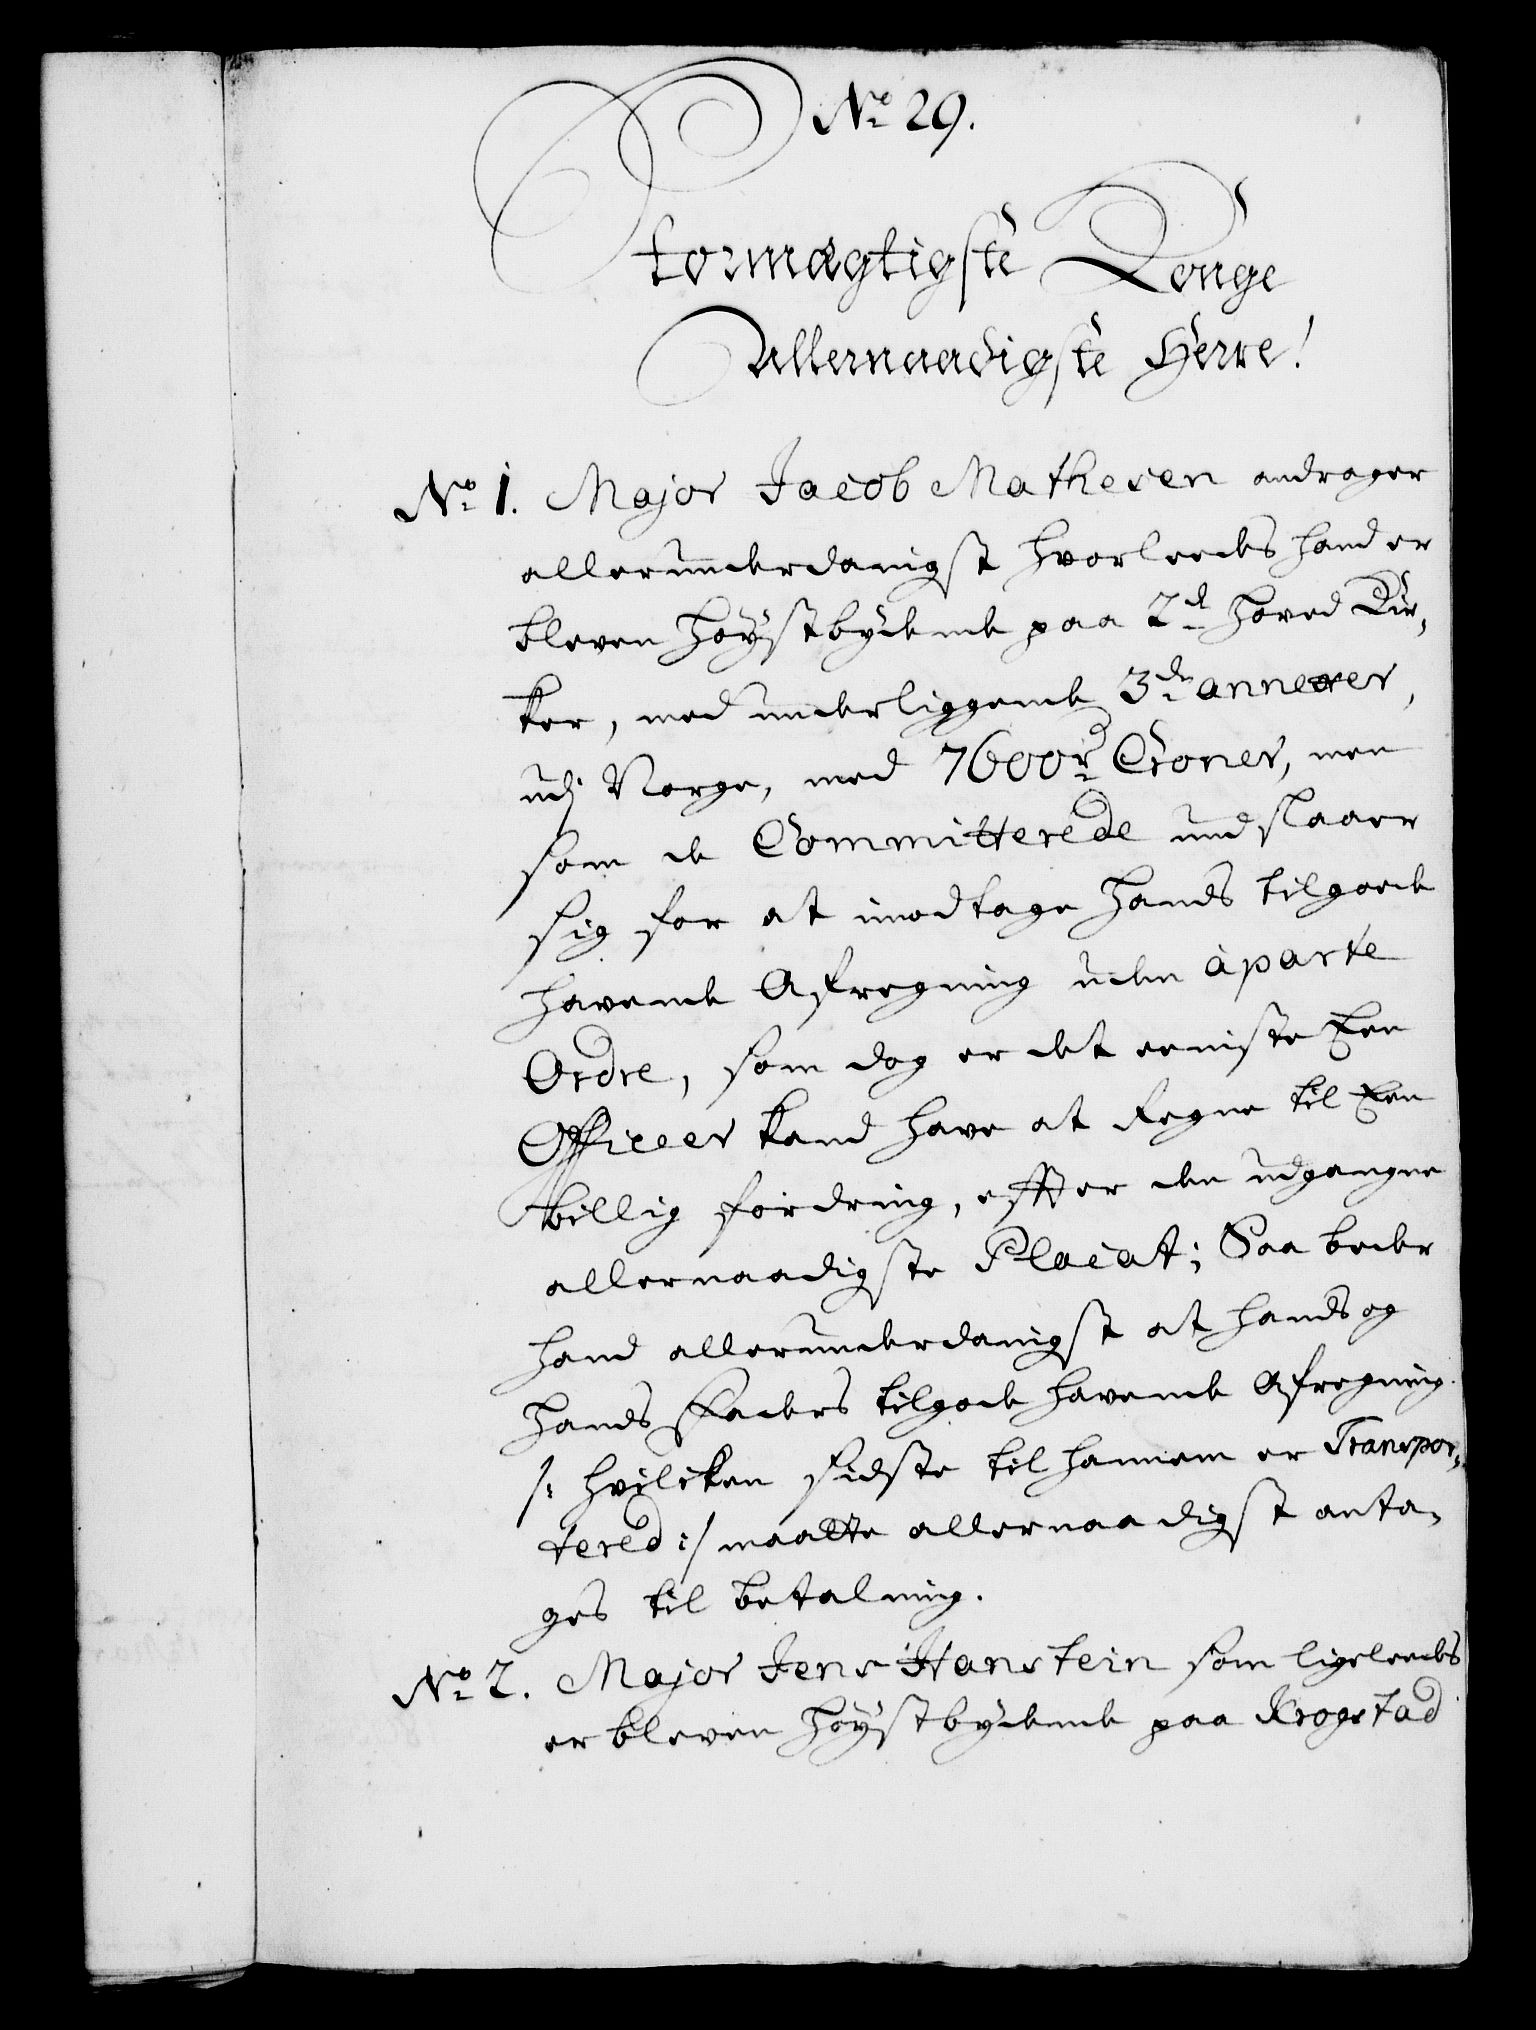 No 29.
Stormægtigste Konge
Allernaadigste Herre!
No 1. Major Jacob Mathesen andrager
allerunderdanigst hvorleedes hand er
bleven høystbydende paa 2de hoved Kir,
ker, med underliggende 3de annexer,
udj Norge, med 7600 rd Croner, men
som de Committerede undslaaer
sig for at imodtage hands tilgode
havende Afregning uden àparte
Ordre, som dog er det eeniste Een
Officeer kand have at Regne til Een
billig fordring, effter den udgangne
allernaadigste Placat; Saa beder
hand allerunderdanigst at hands og
hands Faders tilgode havende Afregning
/: hvilcken sidste til hannem er Transpor,
tered :/ maatte allernaadigst anta,
ges til betalning.
No 2. Major Jens Hanstein som ligeleedes
er bleven høystbydende paa Krogstad